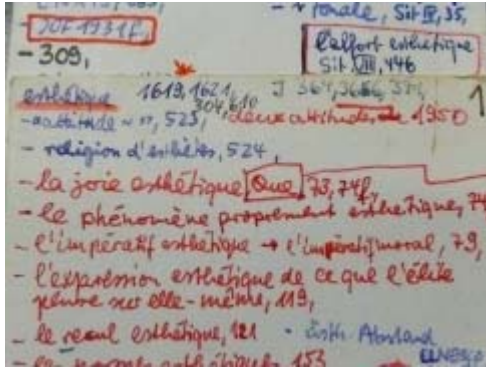 morale, Sit IV, 35,
JOF 1931f,
- 309,
l'effort esthétique
Sit III, 446
esthétique 1619, 1621, J 364, 365,
304, 610
- attitude ~ 523, deux attitudes 1950
- religion d'esthètes, 524,
- la joie esthétique Que, 73, 74f,
- le phénomène proprement esthétique, 74
- l'impératif esthétique → l'impératif moral, 79,
- l'expression esthétique de ce que l'élite
pense sur elle-même, 119,
- le recul esthétique, 121 · ästh. Abstand
- les normes esthétiques 153